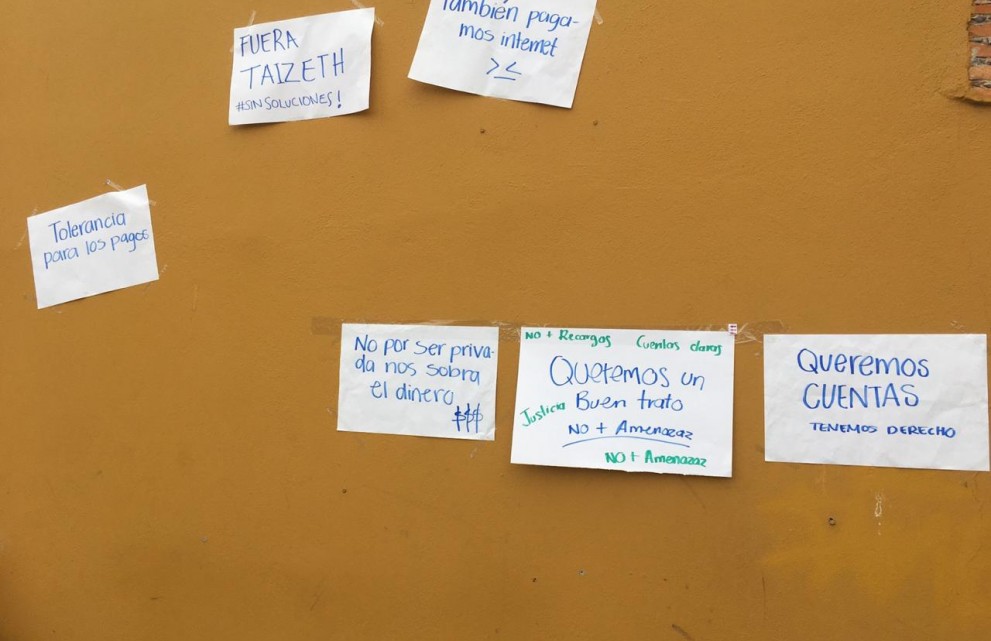 FUERA
TAIZETH
#SIN SOLUCIONES!
También paga-
mos internet
>_<
Tolerancia
para los pagos
No por ser priva-
da nos sobra
el dinero
$$$
NO + Recargos Cuentas claras
Queremos un
Justicia Buen trato
NO + Amenazaz
NO + Amenazaz
Queremos
CUENTAS
TENEMOS DERECHO